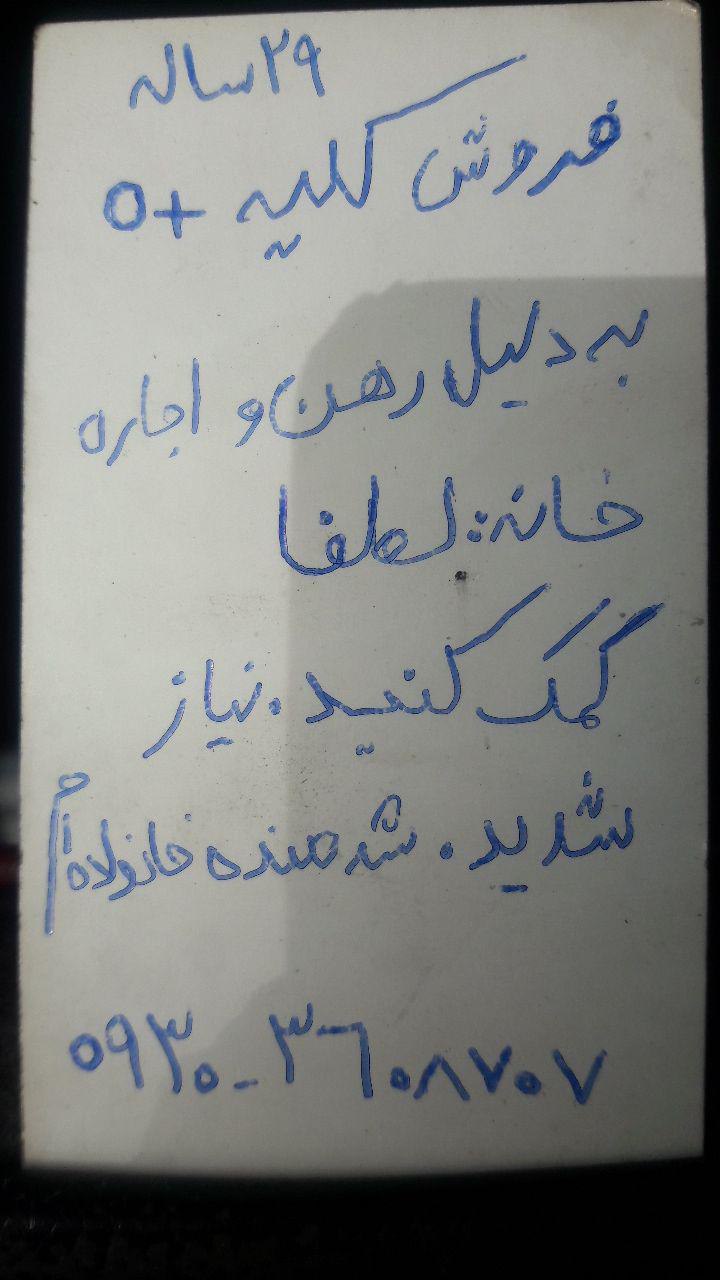 ۲۹ ساله
فروش کلیه +O
به دلیل رهن و اجاره
خانه: لطفا
کمک کنید. نیاز
شدید. شرمنده خانواده‌ام
۰۹۳۰-۳۶۰۸۷۰۷